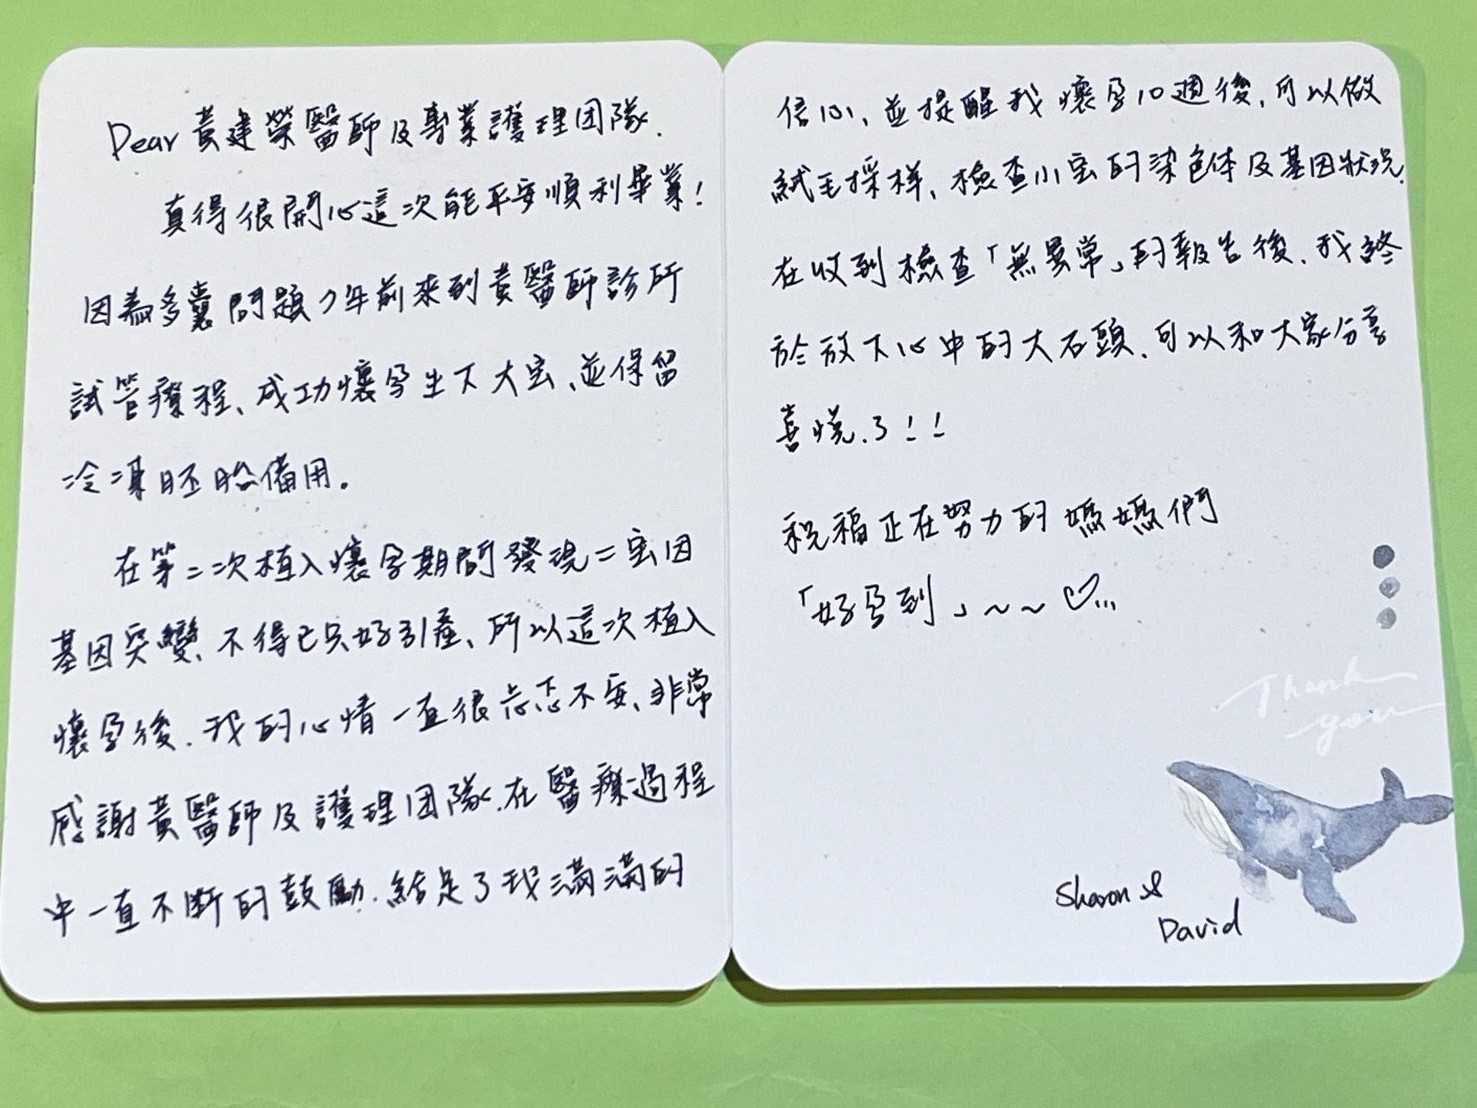 Dear 黃建榮醫師及專業護理团隊.
真得很開心這次能平安順利畢業!
因為多囊問題7年前來到黃醫師診所
試管療程、成功懷孕生下大宝、並保留
冷凍胚胎備用。
在第二次植入懷孕期間發現二宝因
基因突變、不得已只好引產、所以這次植入
懷孕後.我的心情一直很忐忑不安、非常
感謝黃醫師及護理团隊.在醫療過程
中一直不斷的鼓勵.給足了我滿滿的
信心、並提醒我懷孕10週後,可以做
絨毛採样、檢查小宝的染色体及基因狀況.
在收到檢查「無異常」的報告後、我終
於放下心中的大石頭、可以和大家分享
喜悅了!!
祝福正在努力的媽媽們
「好孕到」~~♡...
Thank
you
Sharon &
David